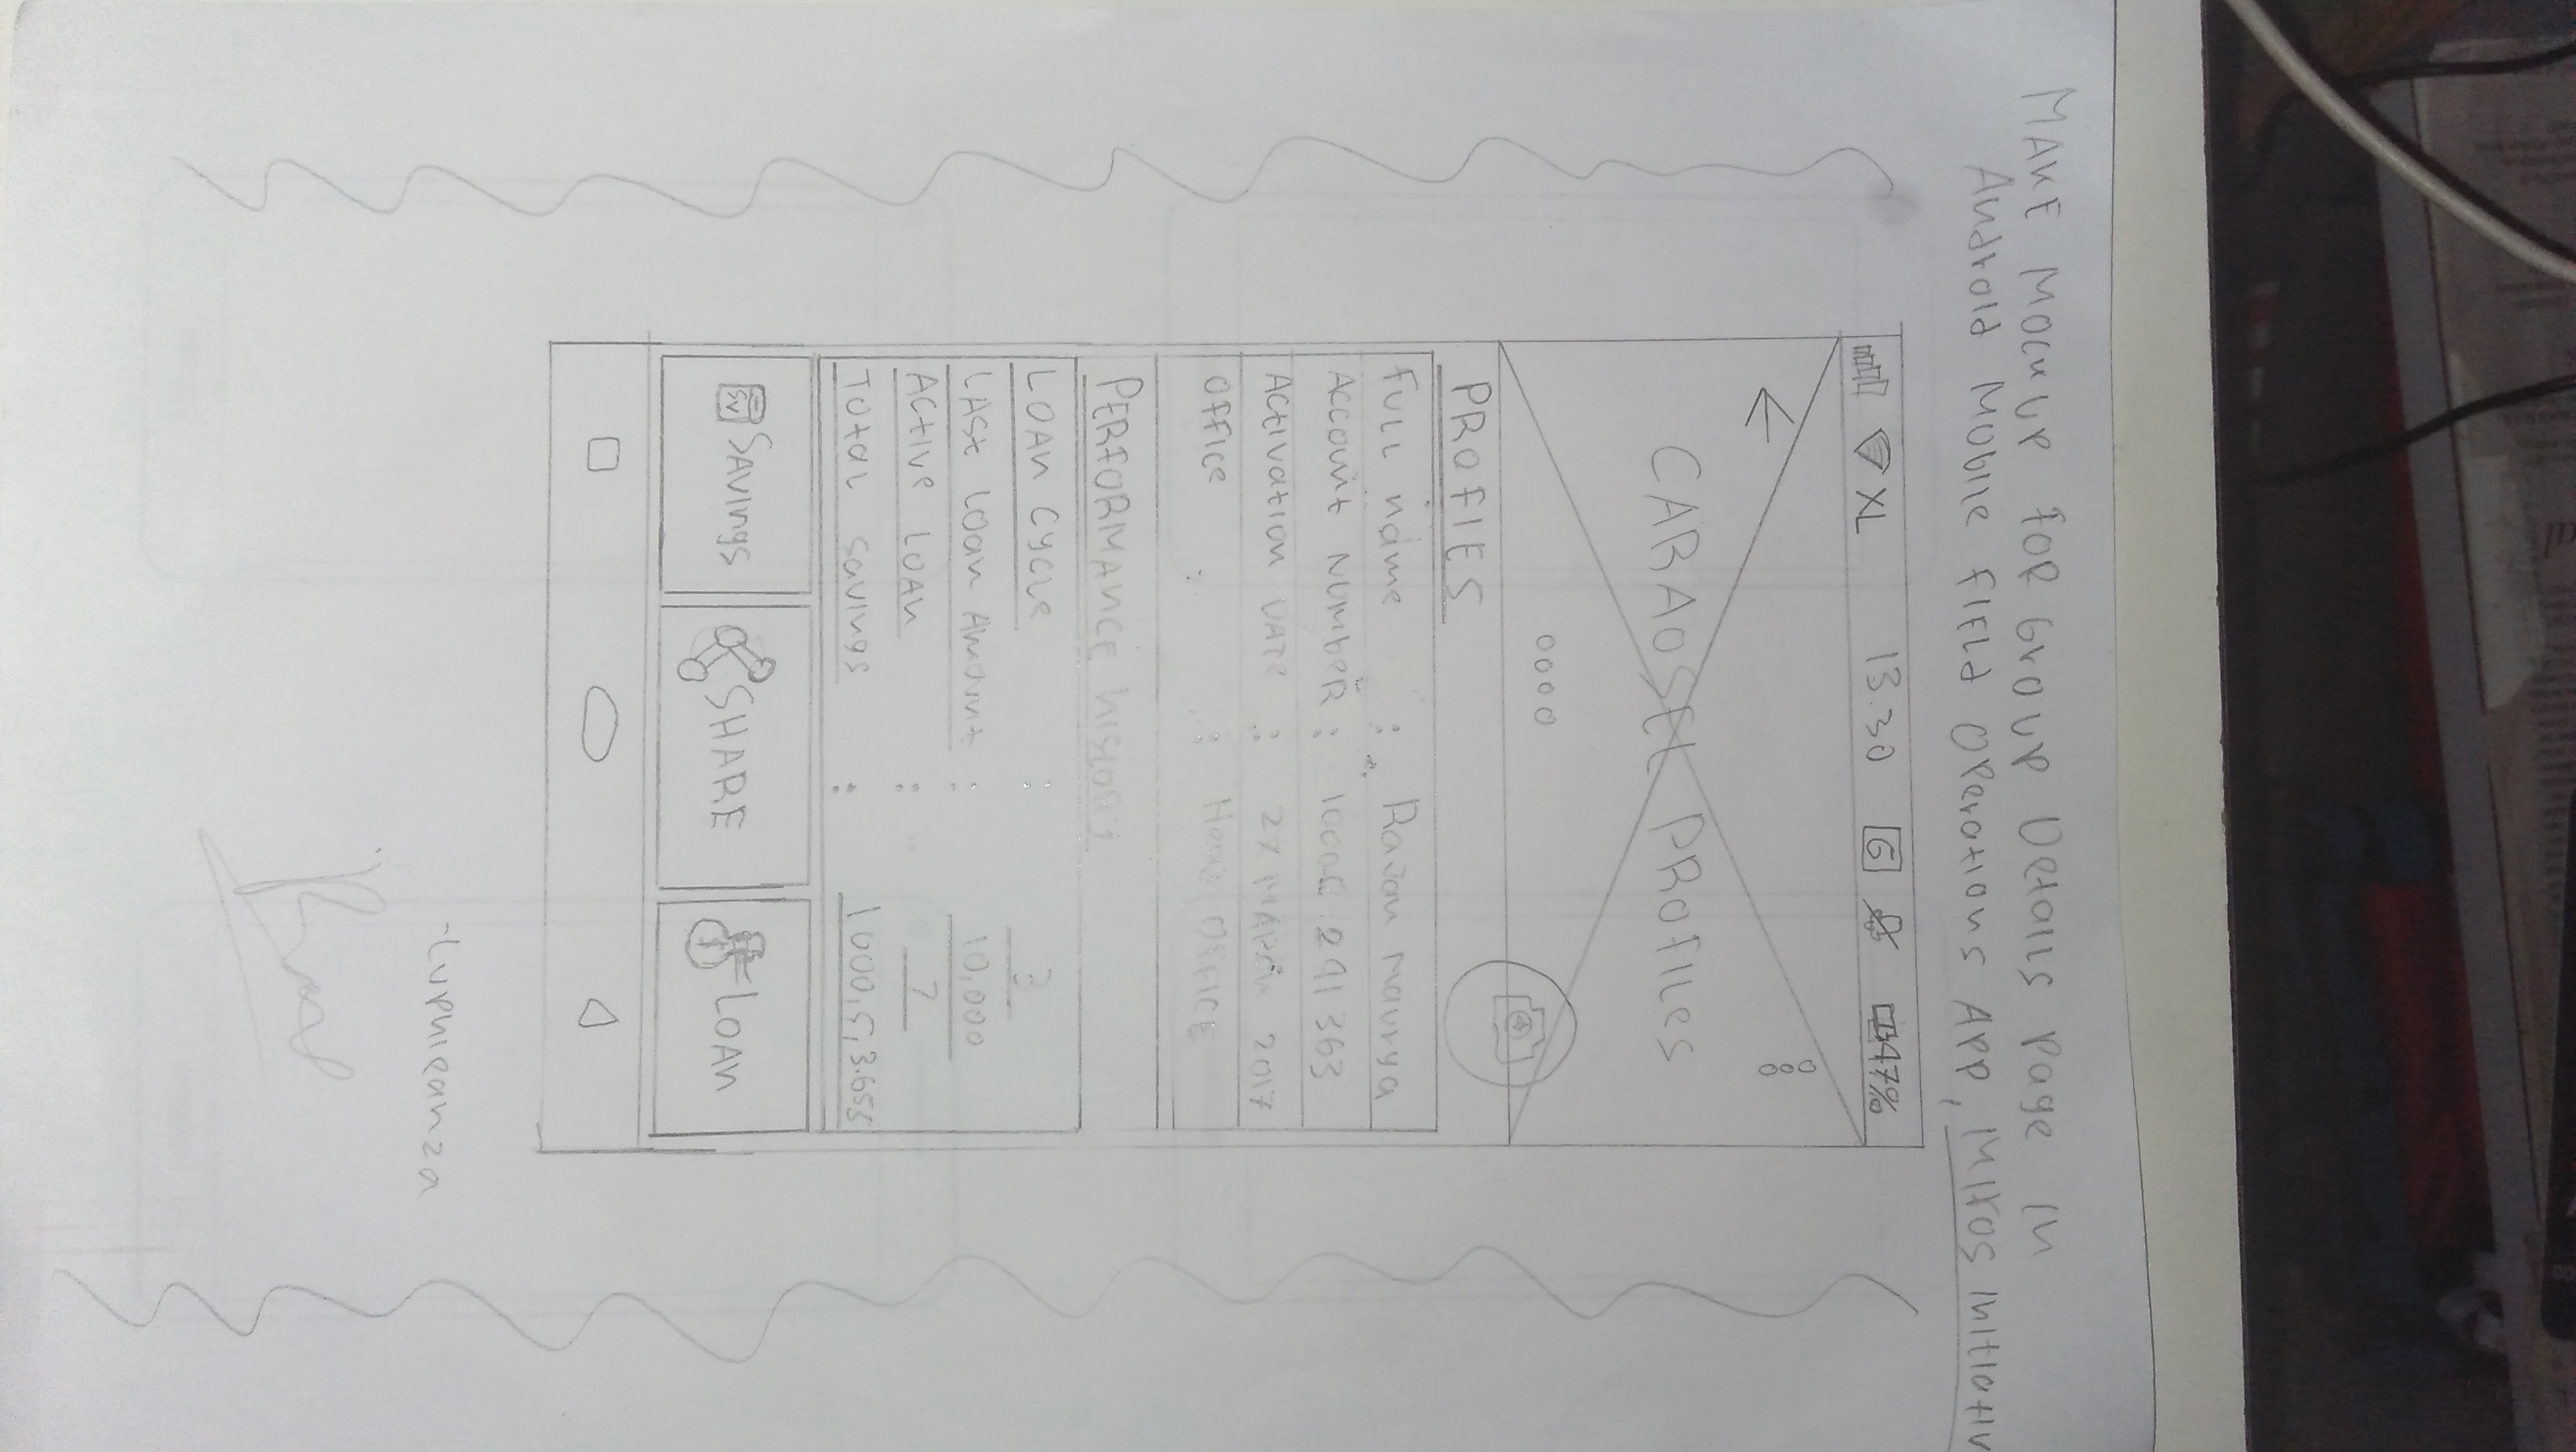 MAKE MOCKUP FOR GROUP Details Page In
Android Mobile FIELD Operations APP, MIFOS Initiativ
XL 13.30 G 47%
CARAOSEL PROFILes
PROFIES
FULL name : Rajan Maurya
Account NUMBER : 291363
Activation DATE : 27 MARCH 2017
OFFICe : Head OFFICE
PERFORMANCE history
LOAN CYCLe : 3
LAST Loan Amount : 10,000
ACTIVe LOAN : 7
TOtaL Savings : 1000,5,3.655
SV Savings SHARE LOAN
-Luphieanza